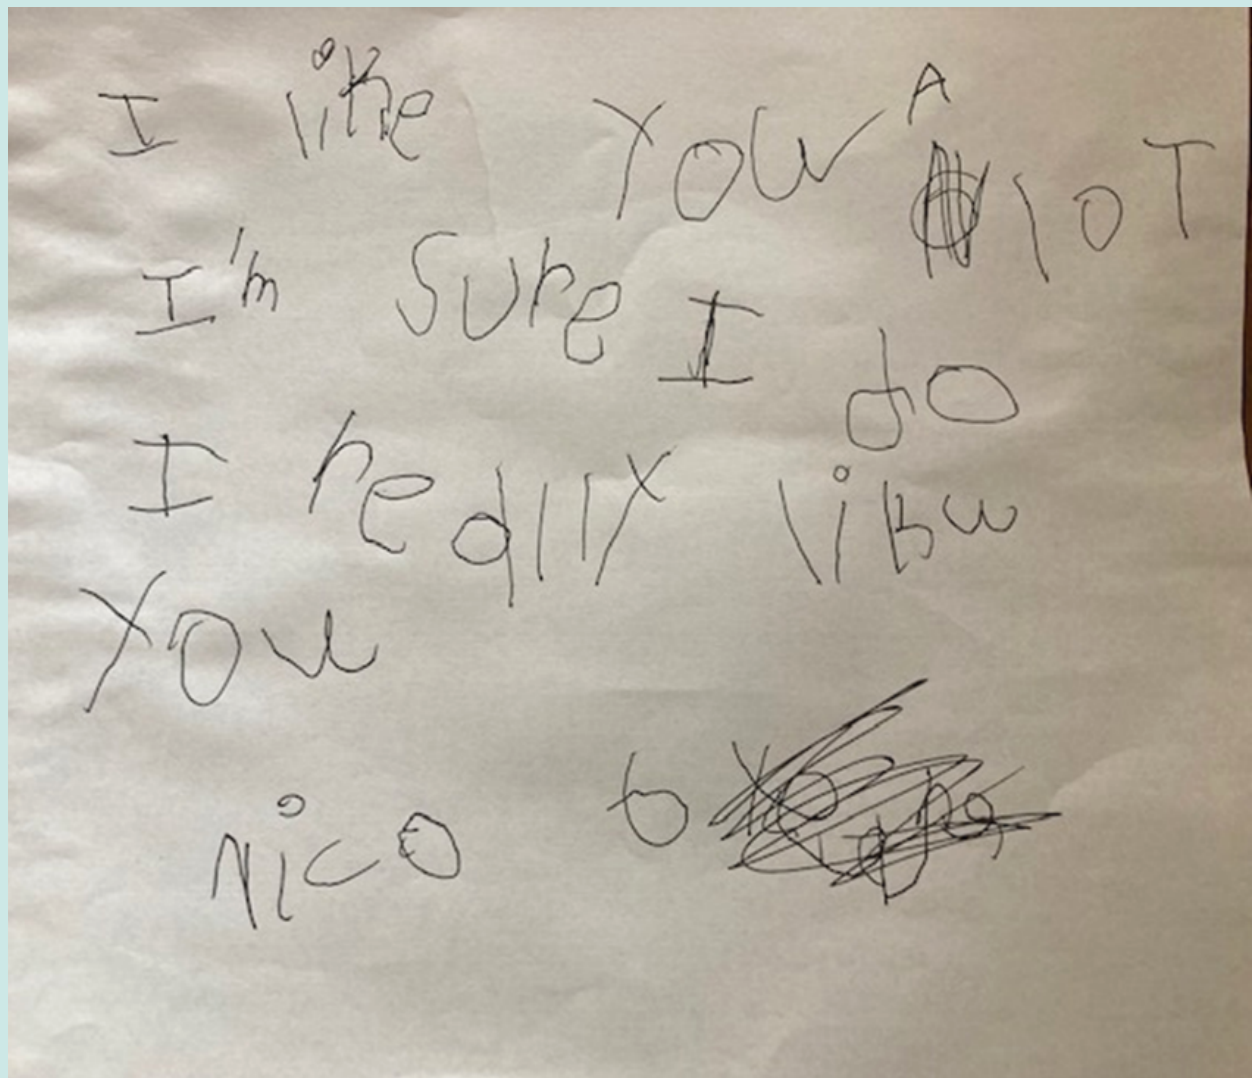 I like YOU A lOT
I'm Sure I do
I really likw
YOU
nico to